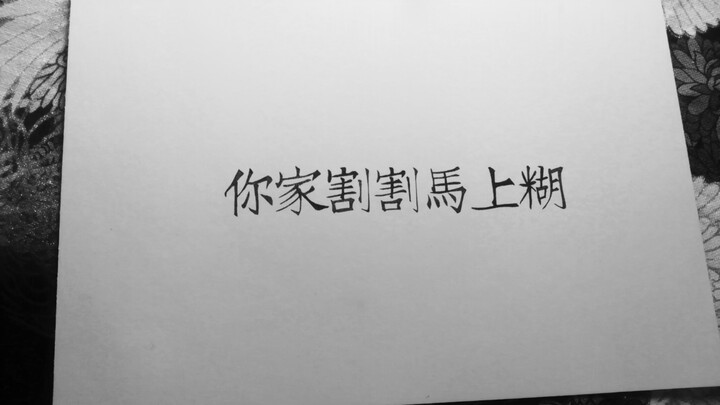 你家割割馬上糊